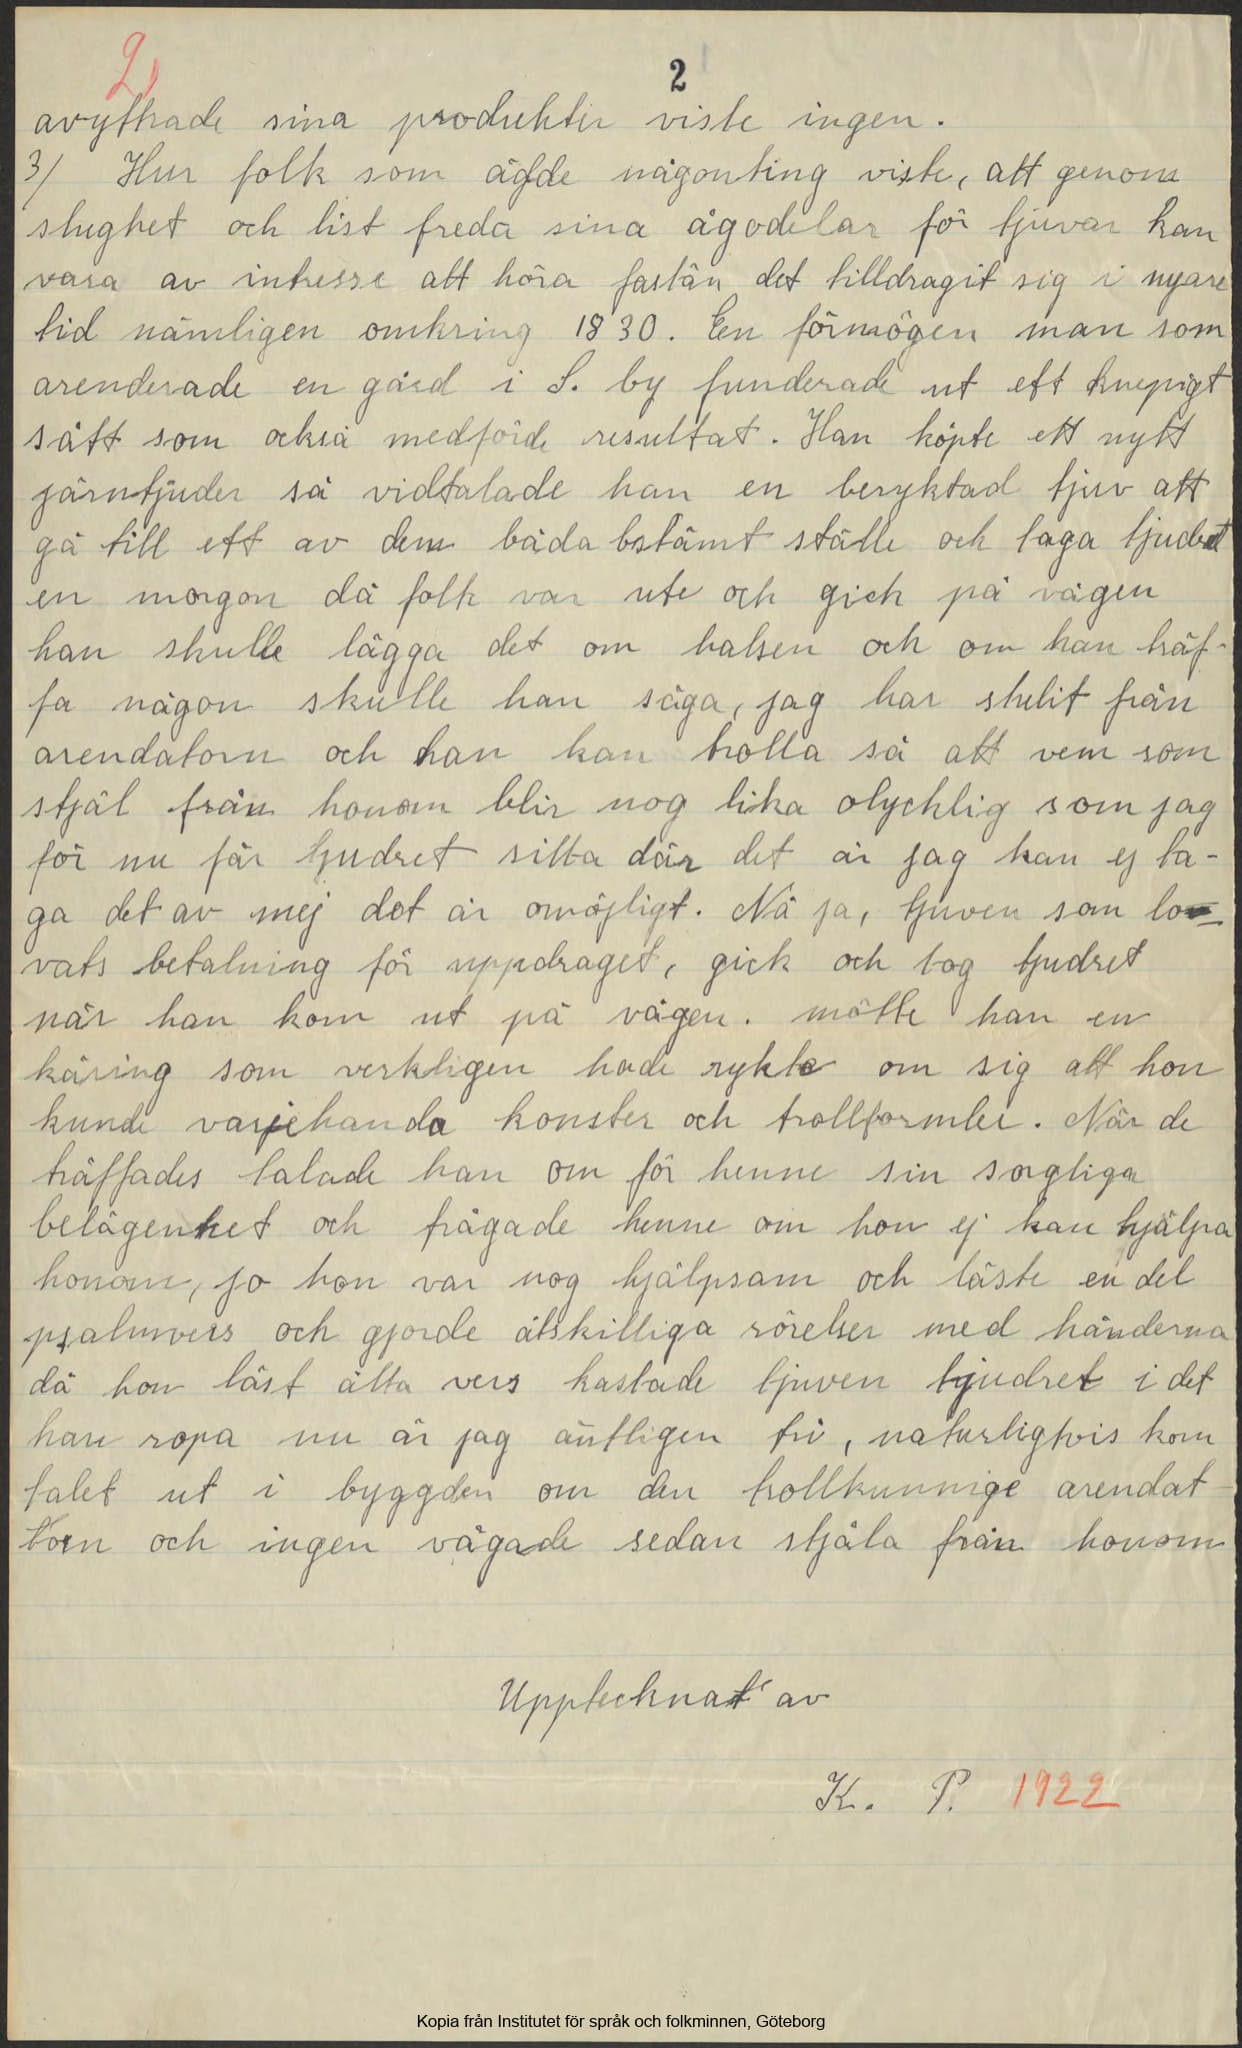 2)
2
avyttrade sina produkter viste ingen.
3/ Hur folk som ägde någonting viste, att genom
slughet och list freda sina ägodelar för tjuvar kan
vara av intresse att höra fastän det tilldragit sig i nyare
tid nämligen omkring 1830. En förmögen man som
arenderade en gård i S. by funderade ut ett knepigt
sätt som också medförde resultat. Han köpte ett nytt
järntjuder så vidtalade han en beryktad tjuv att
gå till ett av dem båda bstämt ställe och taga tjudret
en morgon då folk var ute och gick på vägen
han skulle lägga det om halsen och om han träf-
fa någon skulle han säga, jag har stulit från
arendatorn och han kan trolla så att vem som
stjäl från honom blir nog lika olycklig som jag
för nu får tjudret sitta där det är jag kan ej ta-
ga det av mej det är omöjligt. Nå ja, tjuven som lo-
vats betalning för uppdraget, gick och tog tjudret
när han kom ut på vägen. mötte han en
käring som verkligen hade rykte om sig att hon
kunde varjehanda konster och trollformler. När de
träffades talade han om för henne sin sorgliga
belägenhet och frågade henne om hon ej kan hjälpa
honom, jo hon var nog hjälpsam och läste en del
psalmvers och gjorde åtskilliga rörelser med händerna
då hon läst åtta vers kastade tjuven tjudret i det
han ropa nu är jag äntligen fri, naturligtvis kom
talet ut i byggden om den trollkunnige arendat-
torn och ingen vågade sedan stjäla från honom
Upptecknat av
K. P. 1922
Kopia från Institutet för språk och folkminnen, Göteborg